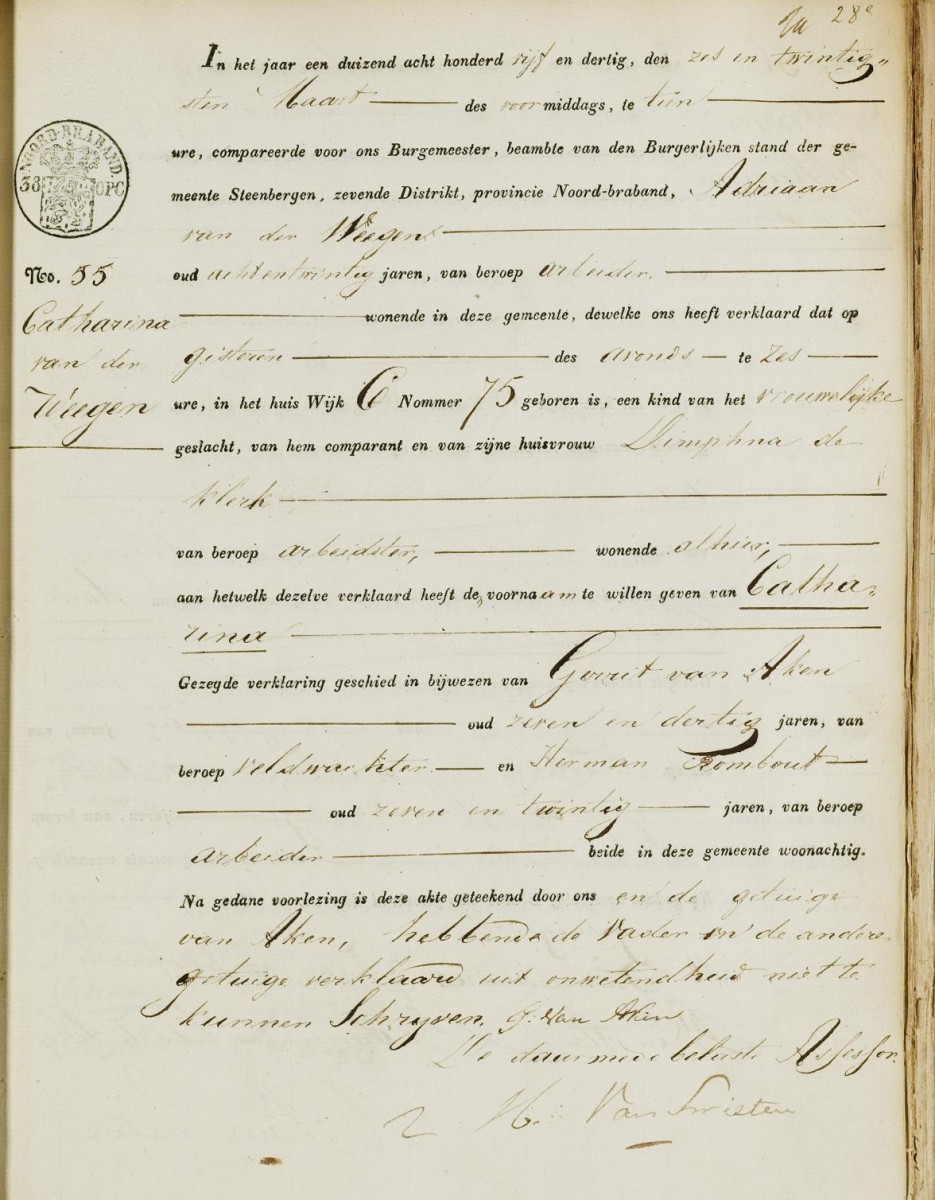 28e
In het jaar een duizend acht honderd vijf en dertig, den zes en twintig„
sten Maart des voormiddags, te tien
ure, compareerde voor ons Burgemeester, beambte van den Burgerlijken stand der ge-
meente Steenbergen, zevende Distrikt, provincie Noord-braband, Adriaan
van der Weegen
oud acht en twintig jaren, van beroep arbeider.
wonende in deze gemeente, dewelke ons heeft verklaard dat op
gisteren des avonds te zes
ure, in het huis Wijk C Nommer 75 geboren is, een kind van het vrouwelijke
geslacht, van hem comparant en van zijne huisvrouw Dimphna de
Klerk
van beroep arbeidster, wonende alhier,
aan hetwelk dezelve verklaard heeft de voornaam te willen geven van Catha„
rina
Gezegde verklaring geschied in bijwezen van Gerrit van Aken
oud zeven en dertig jaren, van
beroep veldwachter en Herman Rombout
oud zeven en twintig jaren, van beroep
arbeider beide in deze gemeente woonachtig.
Na gedane voorlezing is deze akte geteekend door ons en de getuige
van Aken, hebbende de Vader en de andere
getuige verklaard uit onwetendheid niet te
kunnen Schryven. G. Van Aken
De daarmede belaste Assessor.
H. Van Swieten
NOORD-BRABAND.
38 OPC
No. 55
Catharina
van der
Weegen